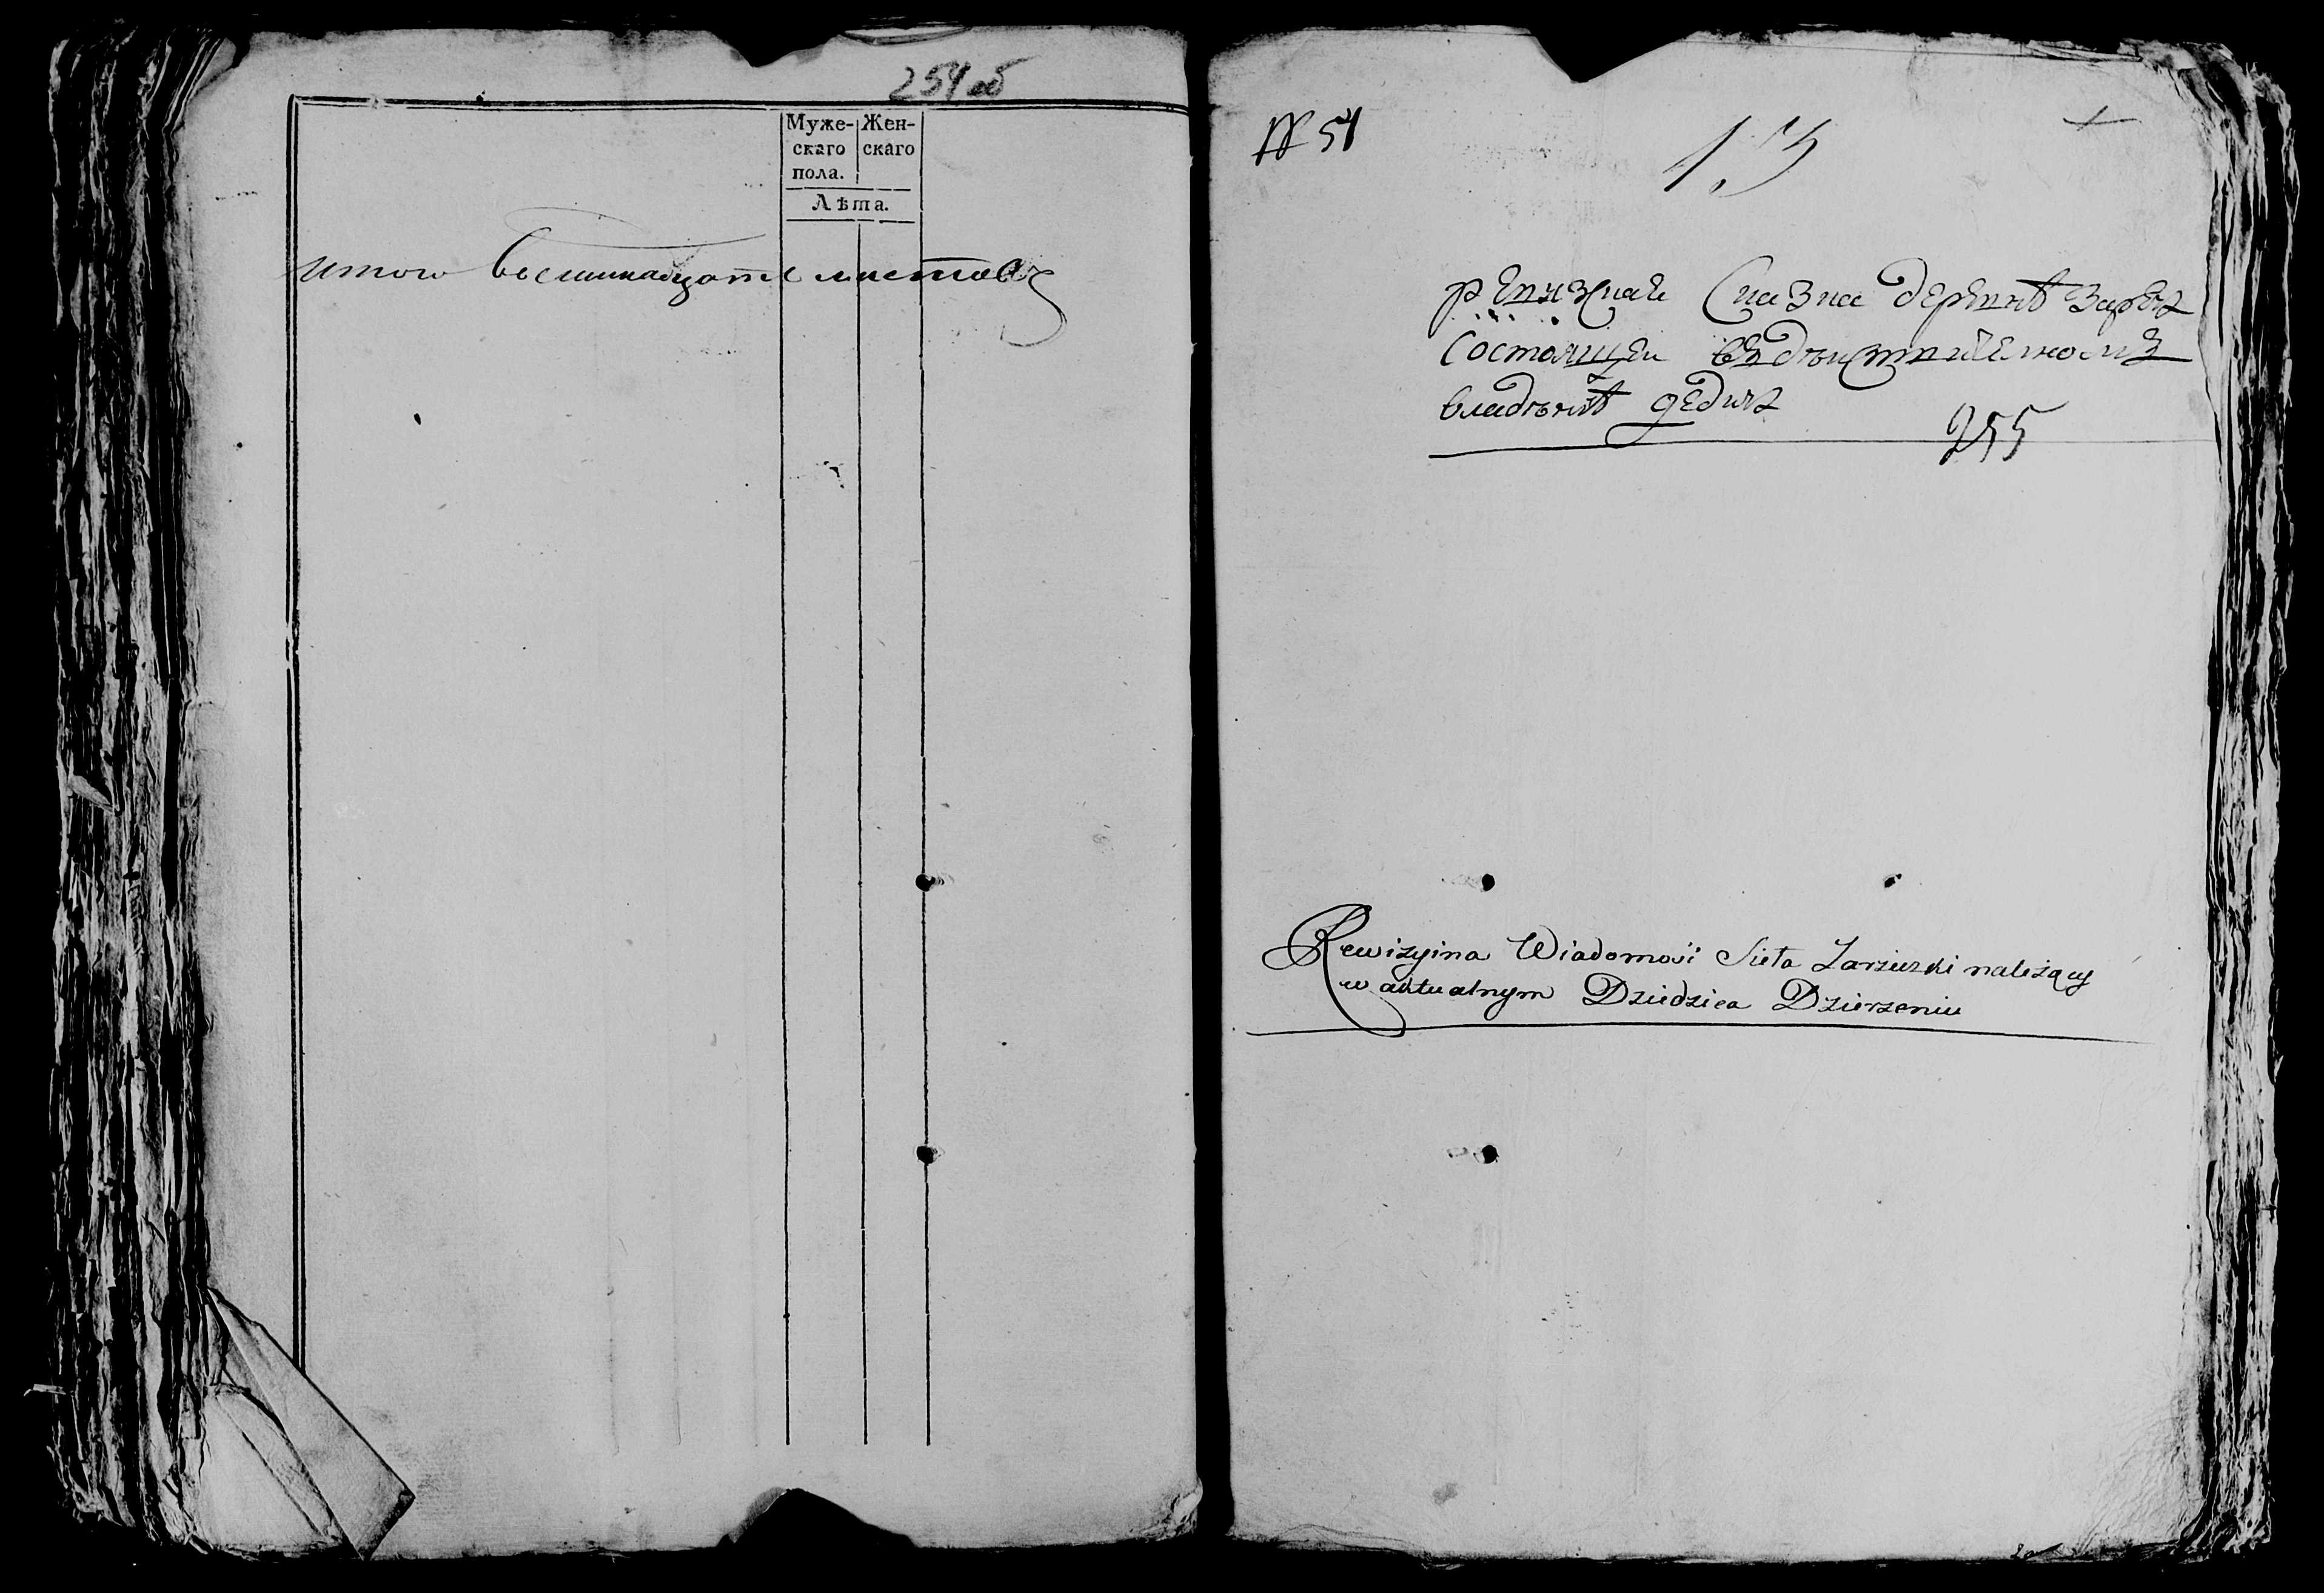 254 об
Муже- Жен-
скаго скаго
пола.
Лѣта.
итого восминадцать листовъ
№ 54
13
ревизная Сказка деревнѣ
состоящей въ действителномъ
владѣнiѣ дедича
255
Rewizyina Wiadomość Sieła Zarzeczki należący
w aktualnym Dziedzica Dzierzeniu